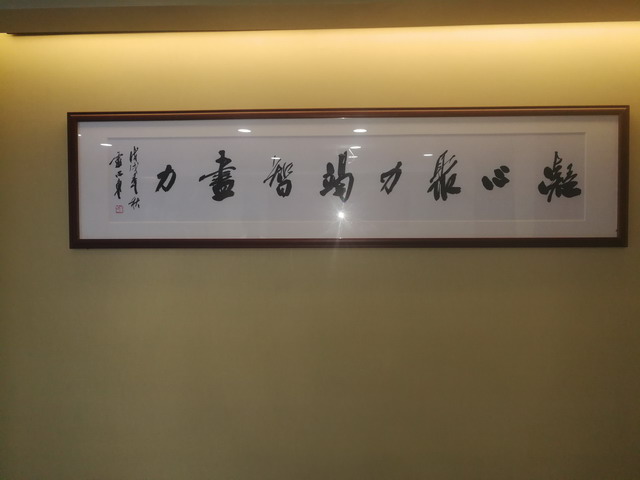 凝心聚力竭智盡力
戊戌年秋